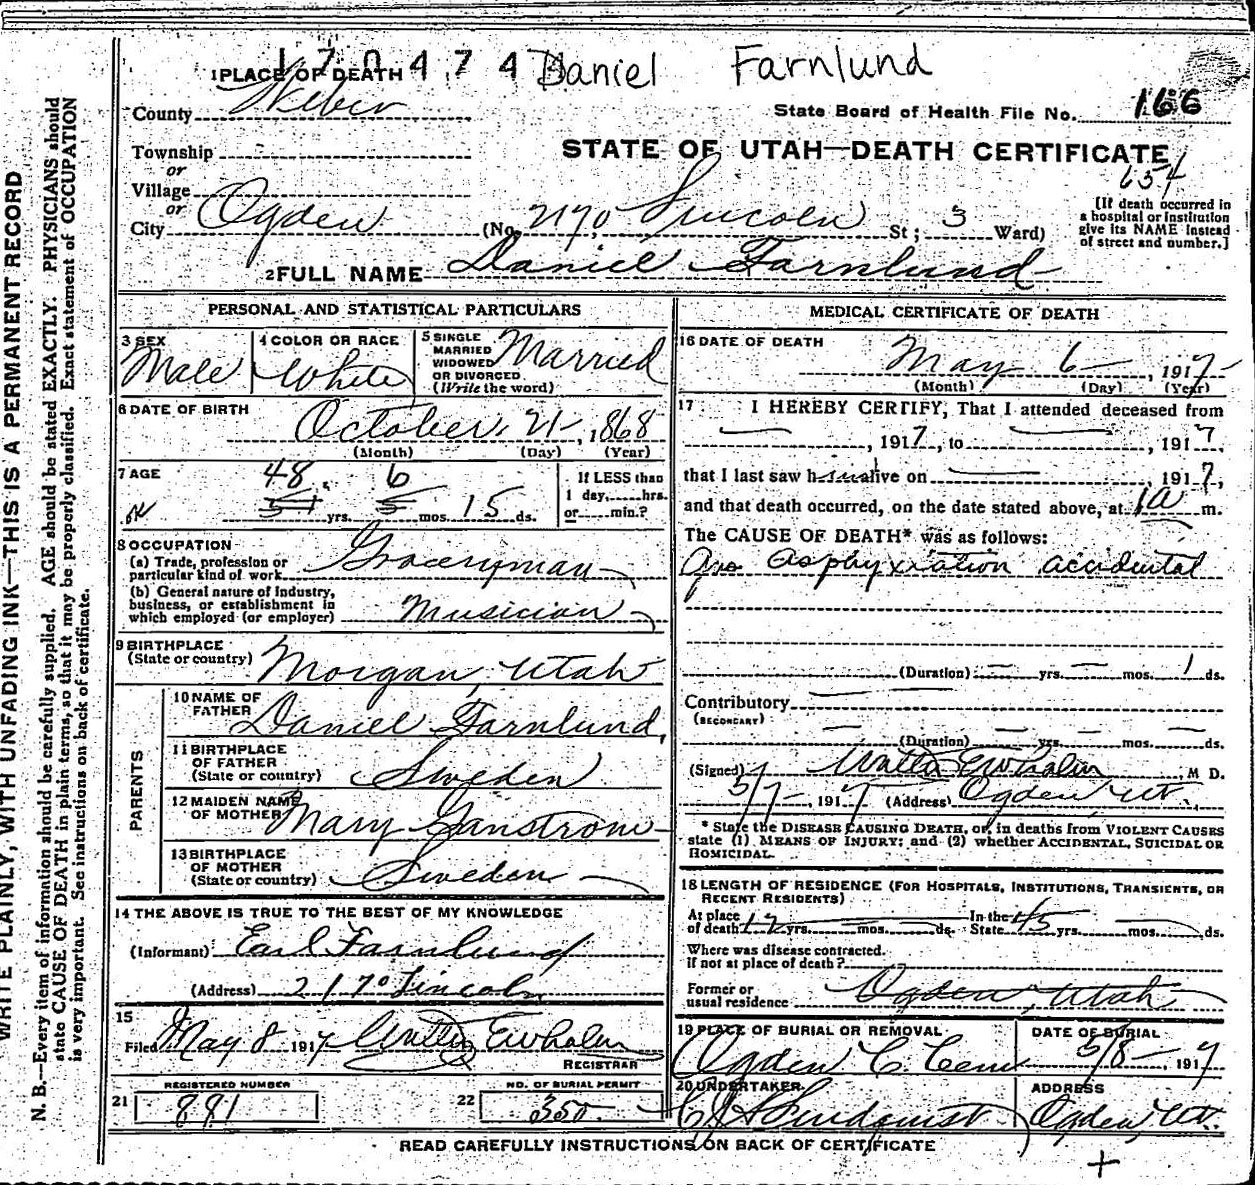 170474 Daniel Farnlund
1 PLACE OF DEATH
County Weber
State Board of Health File No. 166
Township
STATE OF UTAH—DEATH CERTIFICATE
or
Village
654
or
City Ogden (No. 2170 Lincoln St; 3 Ward)
[If death occurred in
a hospital or institution
give its NAME instead
of street and number.]
2 FULL NAME Daniel Farnlund
PERSONAL AND STATISTICAL PARTICULARS
3 SEX
Male
4 COLOR OR RACE
White
5 SINGLE
MARRIED
WIDOWED
OR DIVORCED
(Write the word)
Married
6 DATE OF BIRTH
October 21, 1868
(Month) (Day) (Year)
7 AGE
48 6
yrs. mos. 15 ds.
If LESS than
1 day, hrs.
or min.?
8 OCCUPATION
(a) Trade, profession or
particular kind of work Groceryman
(b) General nature of Industry,
business, or establishment in
which employed (or employer) Musician
9 BIRTHPLACE
(State or country) Morgan, Utah
PARENTS
10 NAME OF
FATHER Daniel Farnlund,
11 BIRTHPLACE
OF FATHER
(State or country) Sweden
12 MAIDEN NAME
OF MOTHER Mary Ganstrom
13 BIRTHPLACE
OF MOTHER
(State or country) Sweden
14 THE ABOVE IS TRUE TO THE BEST OF MY KNOWLEDGE
(Informant) Earl Farnlund
(Address) 2170 Lincoln
15
Filed May 8 1917 Walter E Whalen
REGISTRAR
REGISTERED NUMBER
21 891
NO. OF BURIAL PERMIT
22 350
MEDICAL CERTIFICATE OF DEATH
16 DATE OF DEATH
May 6, 1917
(Month) (Day) (Year)
17 I HEREBY CERTIFY, That I attended deceased from
, 1917, to , 1917,
that I last saw h alive on , 1917,
and that death occurred, on the date stated above, at 1a m.
The CAUSE OF DEATH* was as follows:
Gas asphyxiation accidental
(Duration) yrs. mos. 1 ds.
Contributory
(SECONDARY)
(Duration) yrs. mos. ds.
(Signed) Walter E Whalen, M D.
5/7 1917 (Address) Ogden Ut.
* State the DISEASE CAUSING DEATH, or, in deaths from VIOLENT CAUSES
state (1) MEANS OF INJURY; and (2) whether ACCIDENTAL, SUICIDAL OR
HOMICIDAL.
18 LENGTH OF RESIDENCE (FOR HOSPITALS, INSTITUTIONS, TRANSIENTS, OR
RECENT RESIDENTS)
At place
of death 12 yrs. mos. ds.
In the
State 45 yrs. mos. ds.
Where was disease contracted.
if not at place of death?
Former or
usual residence Ogden, Utah
19 PLACE OF BURIAL OR REMOVAL
Ogden C. Cem
DATE OF BURIAL
5/8 , 1917
20 UNDERTAKER
Lindquist
ADDRESS
Ogden, Ut.
READ CAREFULLY INSTRUCTIONS ON BACK OF CERTIFICATE
WRITE PLAINLY, WITH UNFADING INK—THIS IS A PERMANENT RECORD
N. B.—Every item of information should be carefully supplied. AGE should be stated EXACTLY. PHYSICIANS should
state CAUSE OF DEATH in plain terms, so that it may be properly classified. Exact statement of OCCUPATION
is very important. See instructions on back of certificate.